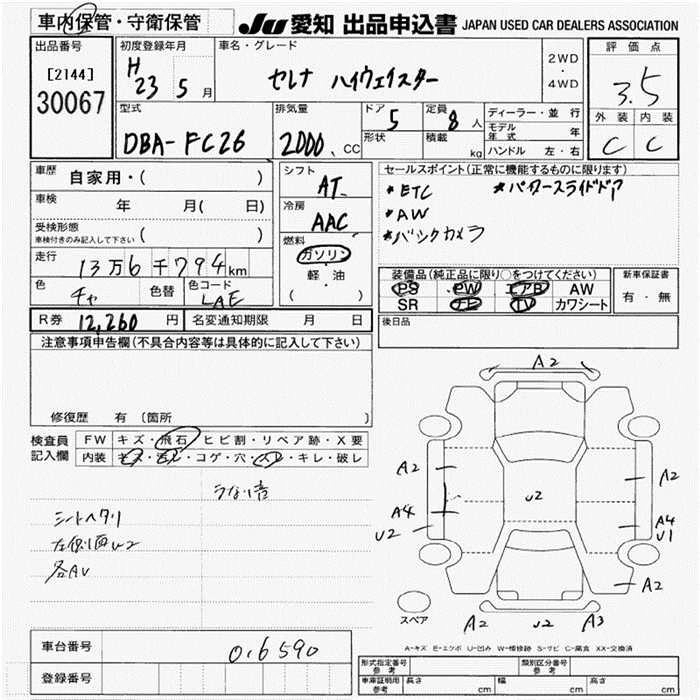 車内保管・守衛保管
JU 愛知 出品申込書 JAPAN USED CAR DEALERS ASSOCIATION
出品番号 初度登録年月 車名・グレード 2WD・4WD 評価点
[2144]
30067
H23 5月
セレナ ハイウェイスター
3.5
型式 排気量 ドア 5 定員 8人 ディーラー・並行 外装 内装
DBA-FC26 2000、CC 形状 積載 kg モデル年式 年 C C
ハンドル 左・右
車歴 自家用・( ) シフト AT セールスポイント(正常に機能するものに限ります)
車検 年 月( 日) 冷房 AAC *ETC *パワースライドドア
*AW
*バックカメラ
受検形態 ( )
車検付きのみ記入して下さい
走行 13万6千794km 燃料 ガソリン・軽・油 ( )
装備品(純正品に限り○をつけてください) 新車保証書
PS PW エアB AW 有・無
SR TV カワシート
色 チャ 色替 色コード LAE
R券 12,260円 名変通知期限 月 日 後日品
注意事項申告欄(不具合内容等は具体的に記入して下さい)
修復歴 有 〔箇所 〕
検査員記入欄 FW キズ・飛石・ヒビ割・リペア跡・X要
内装 キズ・汚レ・コゲ・穴・スレ・キレ・破レ
うなり音
シートヘタリ
左側面U2
各AU
A2
A2 A2
U2
A4 A4
U2 U1
A2
スペア A2 U2 A3
A-キズ E-エクボ U-凹み W-補修跡 S-サビ C-腐食 XX-交換済
車台番号 016590
登録番号
形式指定番号 参考 類別区分番号 参考
車庫証明用 参考 長さ cm 幅 cm 高さ cm